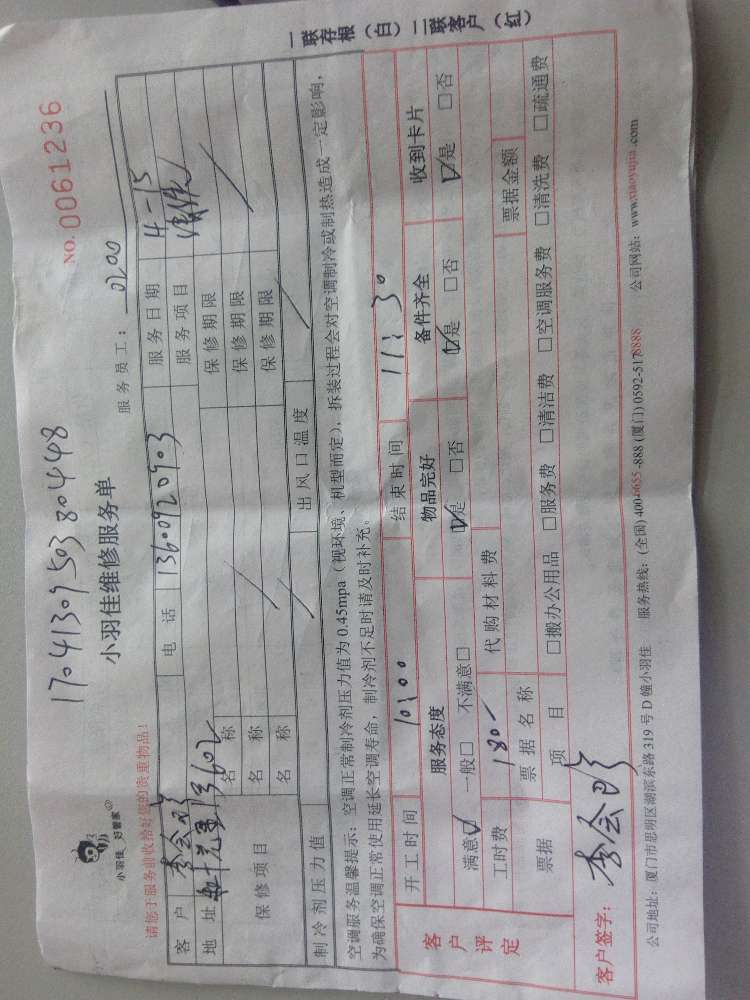 1704130950380448
NO. 0061236
小羽佳 好管家
小羽佳维修服务单
服务员工： 0200
请您于服务前收拾好您的贵重物品！
客户 李会明 电话 13600920903 服务日期 4-15
地址 13602 服务项目 清洗
保修项目 名称 保修期限
名称 保修期限
名称 保修期限
制冷剂压力值 出风口温度
空调服务温馨提示：空调正常制冷剂压力值为 0.45mpa（视环境、机型而定），拆装过程会对空调制冷或制热造成一定影响，
为确保空调正常使用延长空调寿命，制冷剂不足时请及时补充。
客户评定
开工时间 10:00 结束时间 11:30
服务态度 物品完好 备件齐全 收到卡片
满意☑ 一般□ 不满意□ ☑是 □否 ☑是 □否 ☑是 □否
工时费 180- 代购材料费
票据 票据名称 票据金额
项目 □搬办公用品 □服务费 □清洁费 □空调服务费 □清洗费 □疏通费
客户签字： 李会明
公司地址：厦门市思明区湖滨东路 319 号 D 幢小羽佳 服务热线：(全国) 400-6655-888 (厦门) 0592-5178888 公司网站：www.xiaoyujia.com
一联存根（白）二联客户（红）